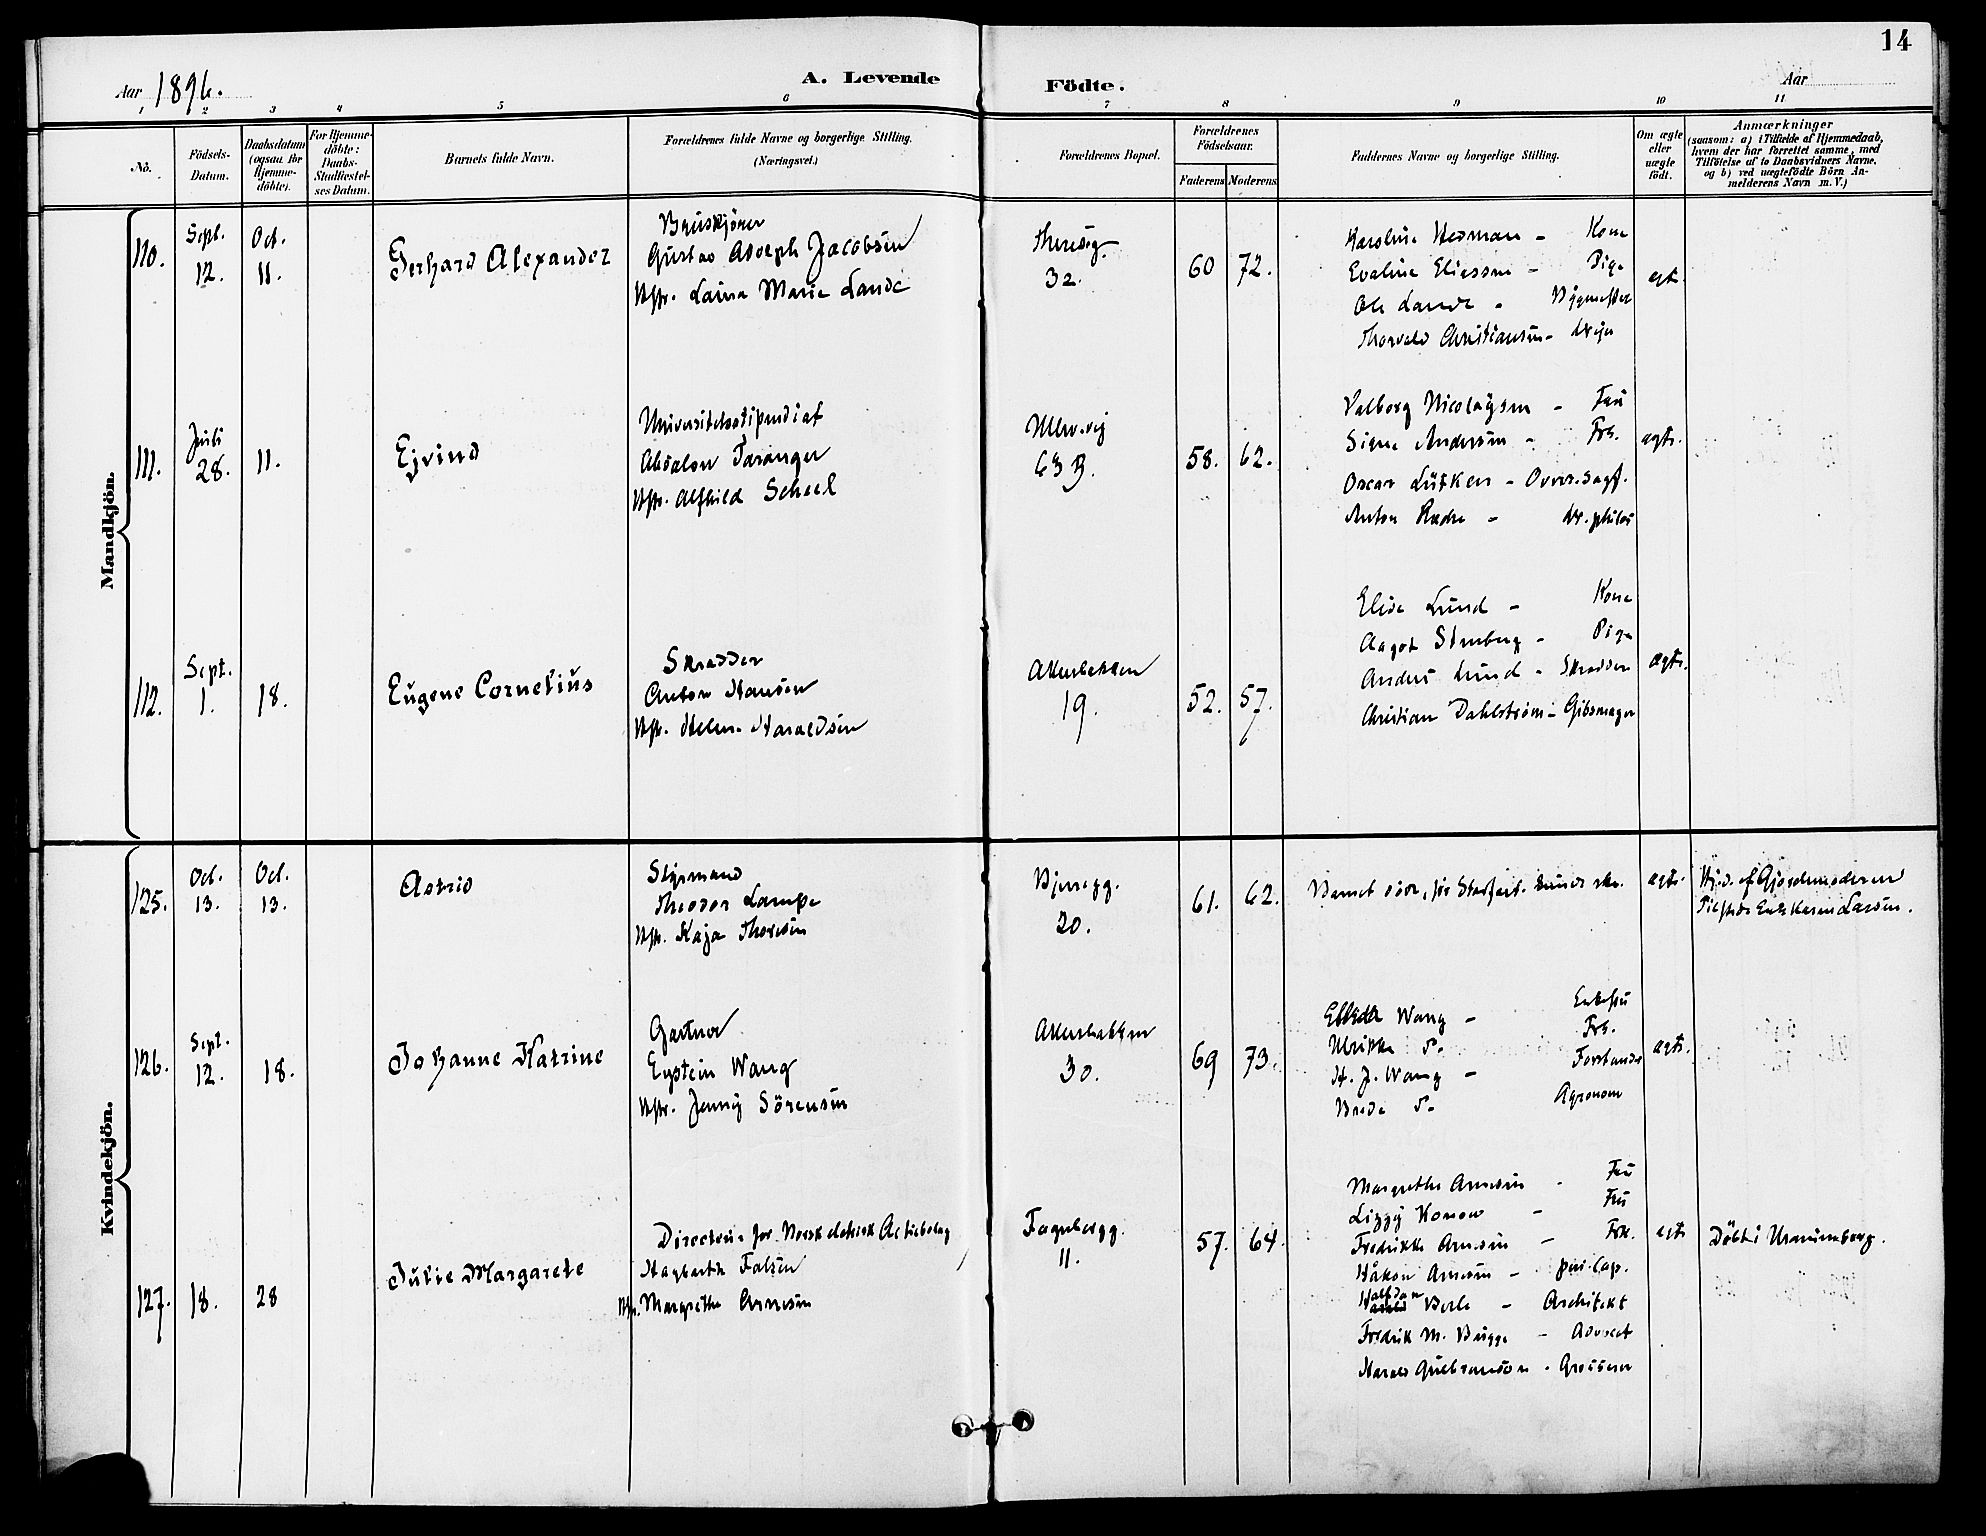 14
Aar 1896.
A. Levende Födte.
Aar
1 2 3 4 5 6 7 8 9 10 11
No.
Födsels-
Datum.
Daabsdatum
(ogsaa for
Hjemme-
döbte).
For Hjemme-
döbte:
Daabs-
Stadfæstel-
ses Datum.
Barnets fulde Navn.
Forældrenes fulde Navne og borgerlige Stilling.
(Næringsvei.)
Forældrenes Bopæl.
Forældrenes
Födselsaar.
Faderens Moderens
Faddernes Navne og borgerlige Stilling.
Om ægte
eller
uægte
födt.
Anmærkninger
(saasom: a) i Tilfælde af Hjemmedaab,
hvem der har forrettet samme, med
Tilföielse af to Daabsvidners Navne.
og b) ved uægtefödte Börn An-
melderens Navn m. V.)
Mandkjön.
110.
Sept.
12.
Oct.
11.
Gerhard Alexander
Gustav Adolph Jacobsen
Hstr. Laura Marie Lande
32.
60 72.
Karoline Hedman - Kone
Evaline Eliassen - Pige
Ole Lande -
Thorvald Christiansen -
ægt.
111.
Juli
28.
11.
Ejvind
Universitetsstipendiat
Absalon Taranger
Hstr. Alfhild Scheel
Ullev.vej
63 B.
58. 62.
Valborg Nicolaysen - Fru
Signe Andersen - Frk.
Oscar Lütken - Overr.sagf.
Anton Ræder - dr. philos
ægte.
112.
Sept.
1.
18.
Eugene Cornelius
Skrædder
Anton Hansen
Hstr. Helene Haraldsen
Akersbakken
19.
52. 57.
Elise Lund - Kone
Aagot Stenberg - Pige
Anders Lund - Skrædder
Christian Dahlström - Gibsmager
ægte.
Kvindekjön.
125.
Oct.
13.
Oct.
13.
Astrid
Styrmand
Theodor Lampe
Hstr. Kaja Thoresen
Bjerregg.
20.
61. 62.
Barnet døde, før Stadfæst. kunde ske.
ægte.
Hjd. af Gjordemoderen
Tilstede Enke Karen Larsen.
126.
Sept.
12.
18.
Johanne Katrine
Gartner
Eystein Wang
Hstr. Jenny Sörensen
Akersbakken
30.
69 73.
Wang - Enkefru
Ulrikke do. Frk.
H. J. Wang - Forstander
Brede do. Agronom
ægte.
127.
18.
28
Julie Margarete
Directeur for Norsk elektrisk Actiebolag
Hagbarth Falsen
Hstr. Margrethe Arnesen
Fagerborgg.
11.
57. 64.
Margrethe Arnesen - Fru
Lizzy Konow - Fru
Fredrikke Arnesen - Frk.
Håkon Arnesen - pr. Cap.
Halfdan Berle - Architekt
Fredrik M. Bugge - Advocat
Harald Gulbranson - Grosserer
ægte
Döbt i Uranienborg.